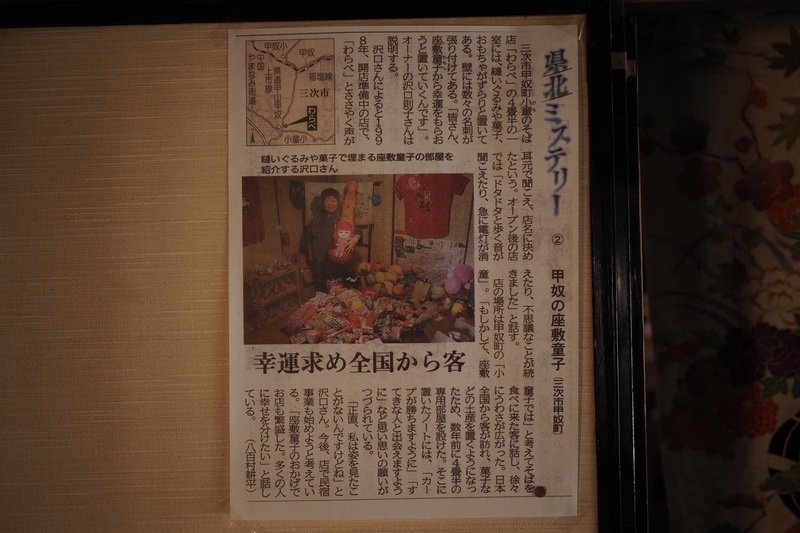 県北ミステリー
②
甲奴の座敷童子
三次市甲奴町
三次市甲奴町小童のそば
店「わらべ」の4畳半の一
室には、縫いぐるみや菓子、
おもちゃがずらりと置いて
ある。壁には数々の名刺が
張り付けてある。「皆さん、
座敷童子から幸運をもらお
うと置いていくんです」。
オーナーの沢口則子さんは
説明する。
沢口さんによると199
8年、開店準備中の店で、
「わらべ」とささやく声が
耳元で聞こえ、店名に決め
たという。オープン後の店
では「ドタドタと歩く音が
聞こえたり、急に電灯が消
えたり、不思議なことが続
きました」と話す。
店の場所は甲奴町の「小
童」。「もしかして、座敷
童子では」と考えてそばを
食べに来た客に話し、徐々
にうわさが広がった。日本
全国から客が訪れ、菓子な
どの土産を置くようになっ
たため、数年前に4畳半の
専用部屋を設けた。そこに
置いたノートには、「カー
プが勝ちますように」「す
てきな人と出会えますよう
に」など思い思いの願いが
つづられている。
「正直、私は姿を見たこ
とがないんですけどね」と
沢口さん。今後、店で民宿
事業も始めようと考えてい
る。「座敷童子のおかげで
お店も繁盛した。多くの人
に幸せを分けたい」と話し
ている。
(八百村耕平)
甲奴小
甲奴
福塩線
県道甲山甲奴上市線
中国やまなみ街道
三次市
わらべ
小童小
縫いぐるみや菓子で埋まる座敷童子の部屋を
紹介する沢口さん
幸運求め全国から客